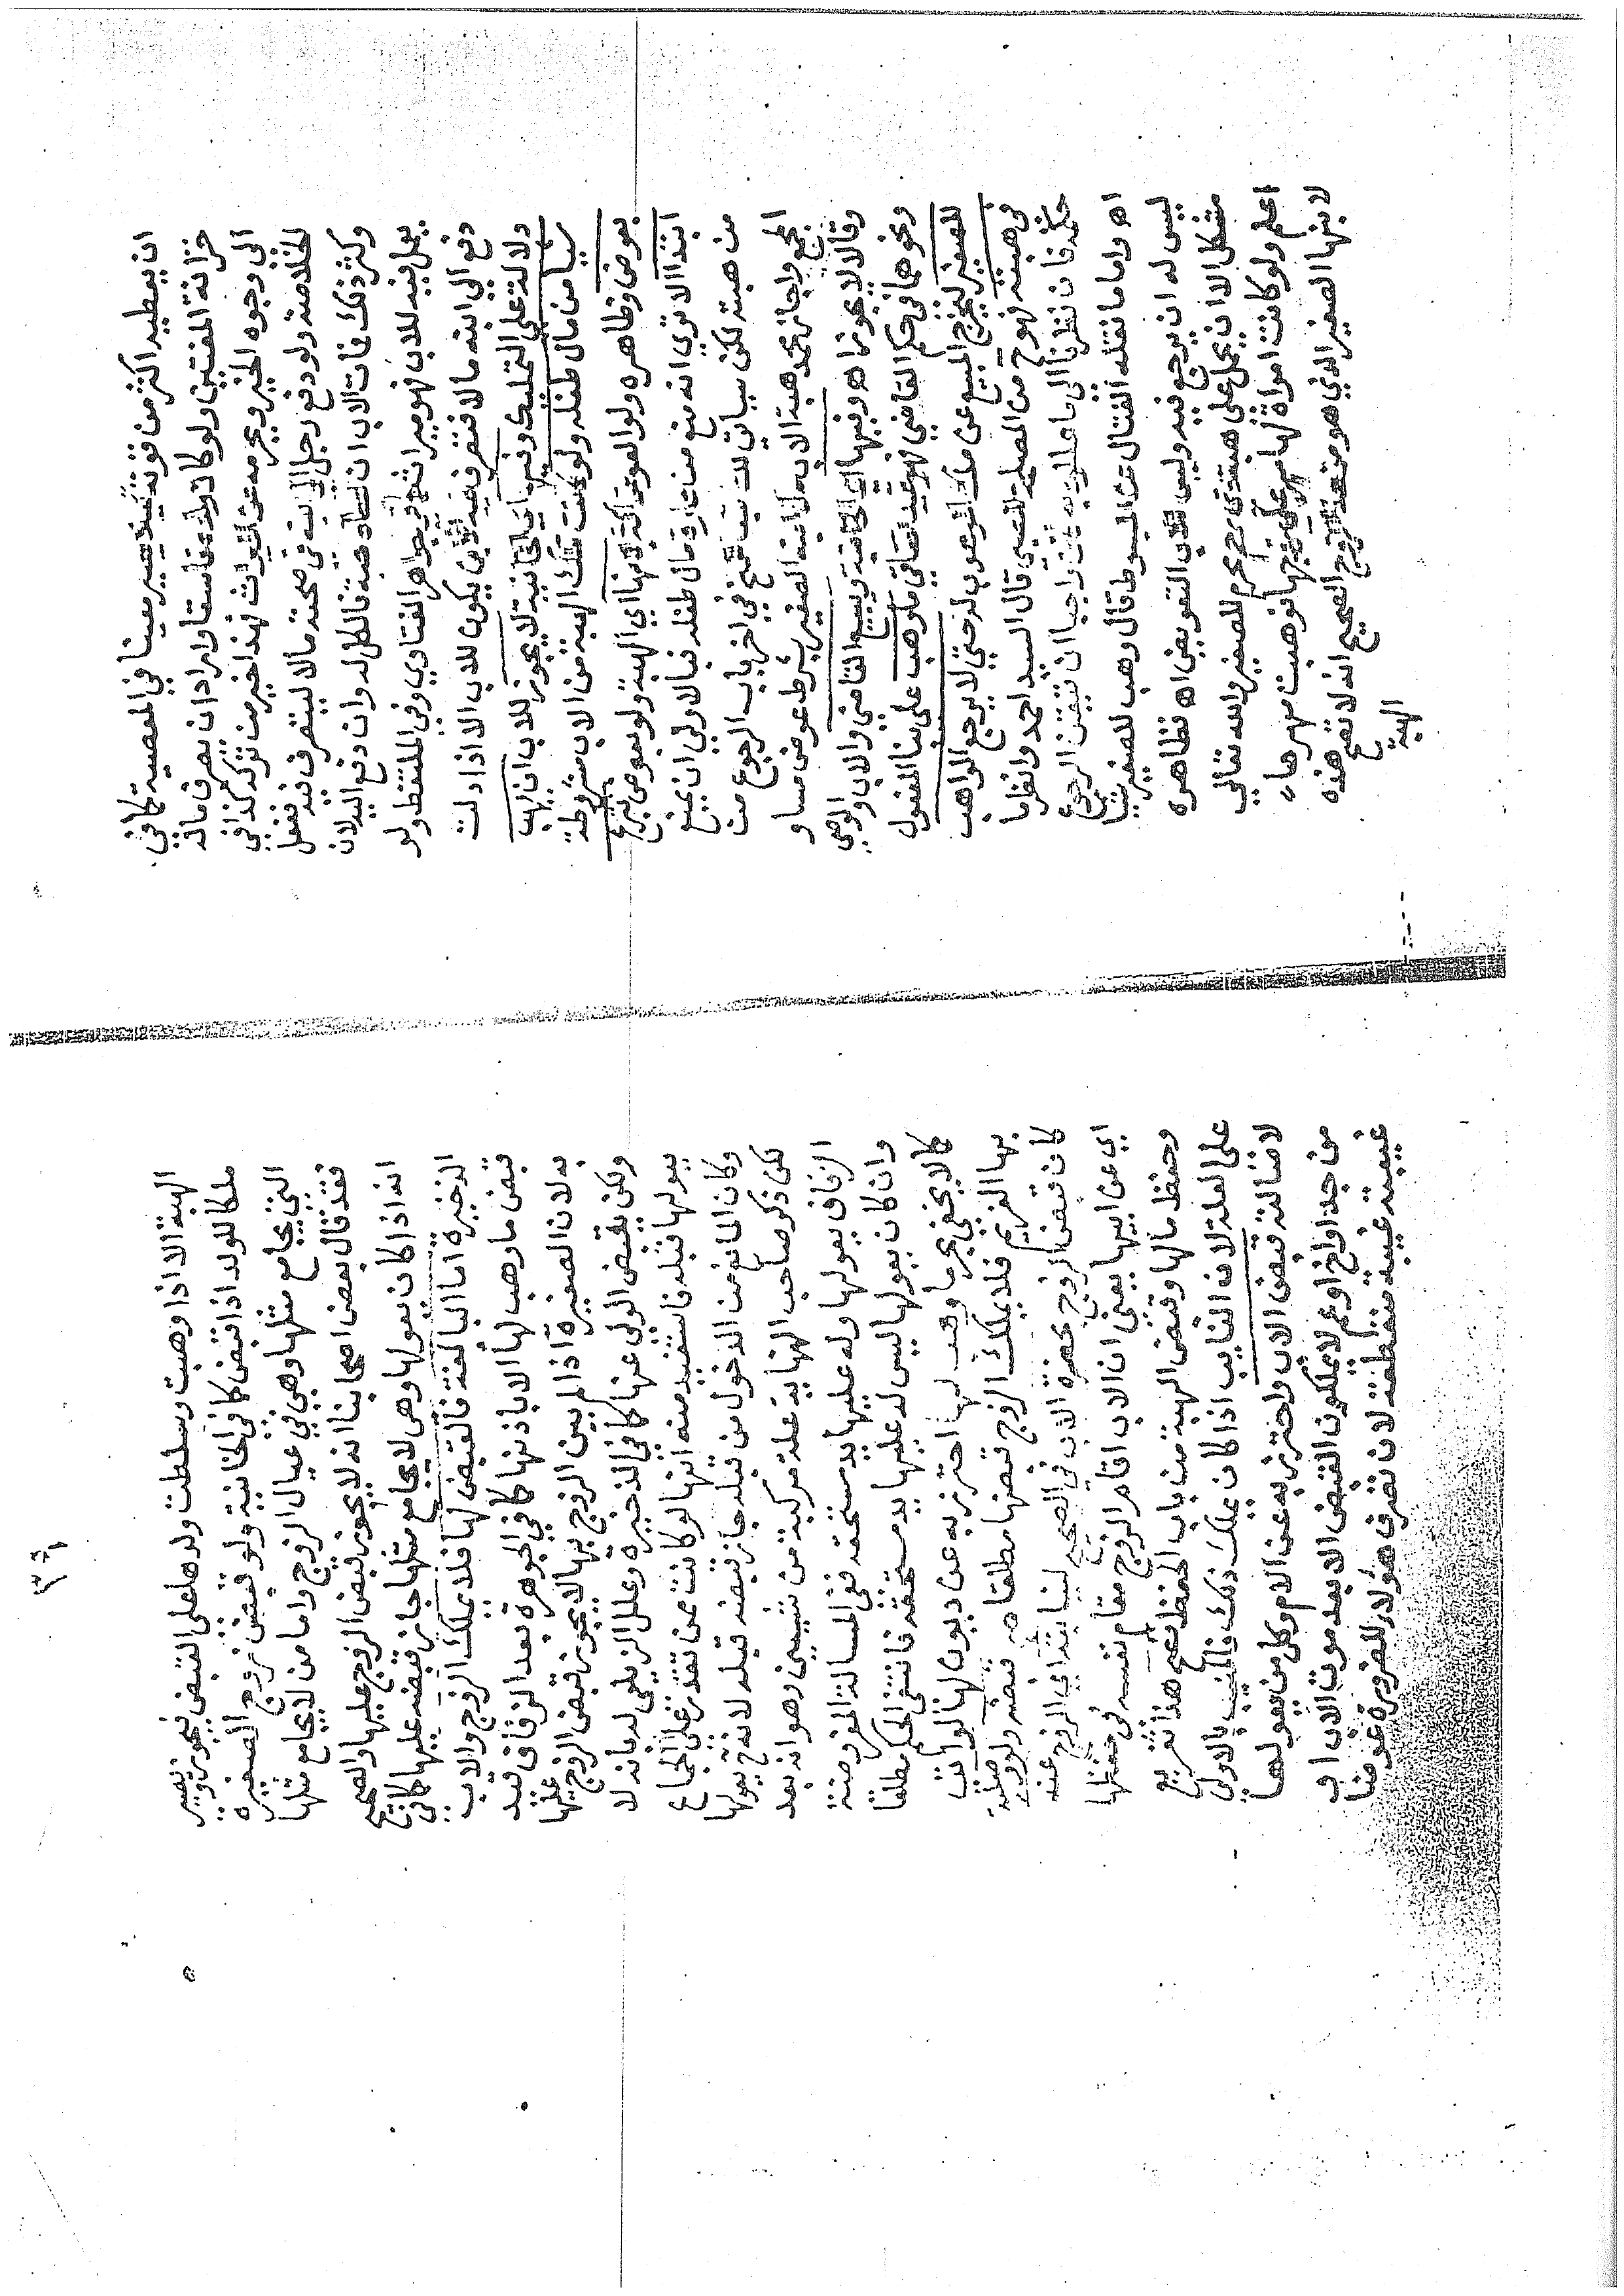 ان يعطيه اكثر من قوته كيلا يصير معينا في المعصية كما في
خزانة المفتين ولو كان ولده فاسقا واراد ان يصرف ماله
الى وجوه الخير ويحرمه عن الميراث فهذا خير من تركه كذا في
الخلاصة ولو دفع رجل الى ابنه في صحته مالا ليتصرف فيه ففعل
وكثر ذلك فمات الاب ان اعطاه هبة فالكل له وان دفع اليه لان
يعمل فيه للاب فهو ميراث كما في جواهر الفتاوي وفي الملتقط ولو
دفع الى ابنه مالا فتصرف فيه الابن يكون للاب الا اذا دلت
دلالة على التمليك وفيها اي الخانية لا يجوز للاب ان يهب
شيا من مال طفله ولو كانت تلك الهبة من الاب مشروطة
بعوض وظاهره ولو العوض اكثر لانها اي الهبة ولو بعوض تبرع
ابتدا الا ترى انه منع من مال طفله فبالاولى ان يمنع
من هبته لكن سياتي في اخر باب الرجوع من
المجمع واجاز محمد هبة الاب لابنه الصغير بشرط عوض مساو
وقالا لا يجوز اه وفيها اي الخانية ويبيع القاضي والاب والوصي
ونحوهما في حكم القاضي ما وهب على بنا المفعول
للصغير ليخرج المبيع عن ملك الموهوب له حتى لا يرجع الواهب
في هبته فهو ح من المصلحة للصبي قال السيد احمد وانظر ما
حكمه فان نظرنا الى ما عللوا به واجبا ان تيقن الرجوع
اه واما ما نقله الفتال عن المبسوط قال وهب للصغير شيا
ليس له ان يرجع فيه وليس للاب التعويض اه فظاهره
مشكل الا ان يحمل على هبة ذي رحم محرم للصغير والله تعالى
اعلم ولو كانت امراة لها مهر على زوجها فوهبت مهرها
لابنها الصغير الذي من هذا الزوج الصحيح انه لا تصح هذه
الهبة
٣٦
الهبة الا اذا وهبت وسلطت ولدها على القبض فيجوز ويصير
ملكا للولد اذا قبض كما في الخانية ولو قبض زوج الصغيرة
التي يجامع مثلها وهي في عيال الزوج واما من لا يجامع مثلها
فقد قال بعض اصحابنا انه لا يجوز قبض الزوج عليها والصحيح
انه اذا كان يعولها وهي لا يجامع مثلها جاز قبضه عليها كما في
الذخيرة اما البالغة فالقبض لها فلا يملك الزوج والاب
قبض ما وهب لها الا باذنها كما في الجوهرة بعد الزفاف قيد
به لان الصغيرة اذا لم يبن الزوج بها لا يجوز قبض الزوج عليها
ولكن يقبض الولي عنها كما في الذخيرة وعلل الزيلعي له بانه لا
يعولها قبله فاستفيد منه انها لو كانت ممن تقدر على الجماع
وكان المانع من الدخول من قبله جاز قبضه قبله لانه ح يعولها
لكن ذكر صاحب النهاية علة مركبة من شيئين وهو انه بعد
الزفاف يعولها وله عليها يد مستحقة ففي المسالة المفروضة
وان كان يعولها ليس له عليها يد مستحقة فانتفى الحكم مطلقا
كما لا يخفى بحر ما وهب لها احترز به عن ديون لها لو اتت
بها الغريم فلا يملك الزوج قبضها مطلقا قبضه ولو وصلية
كان قبض الزوج بحضرة الاب في الصحيح لنيابته اي الزوج عنه
اي عن ابيها يعني ان الاب اقام الزوج مقام نفسه في حفظها
وحفظ مالها وقبض الهبة من باب الحفظ فصح هذا تفريع
على العلة لان الغايب اذا كان يملك ذلك بالاولى
لاصالته قبض الاب واحترز به عن الام وكل من يعولها
من جد واخ او عم لا يملكون القبض الا بعد موت الاب او
غيبته غيبة منقطعة لان تصرف هؤلاء للضرورة